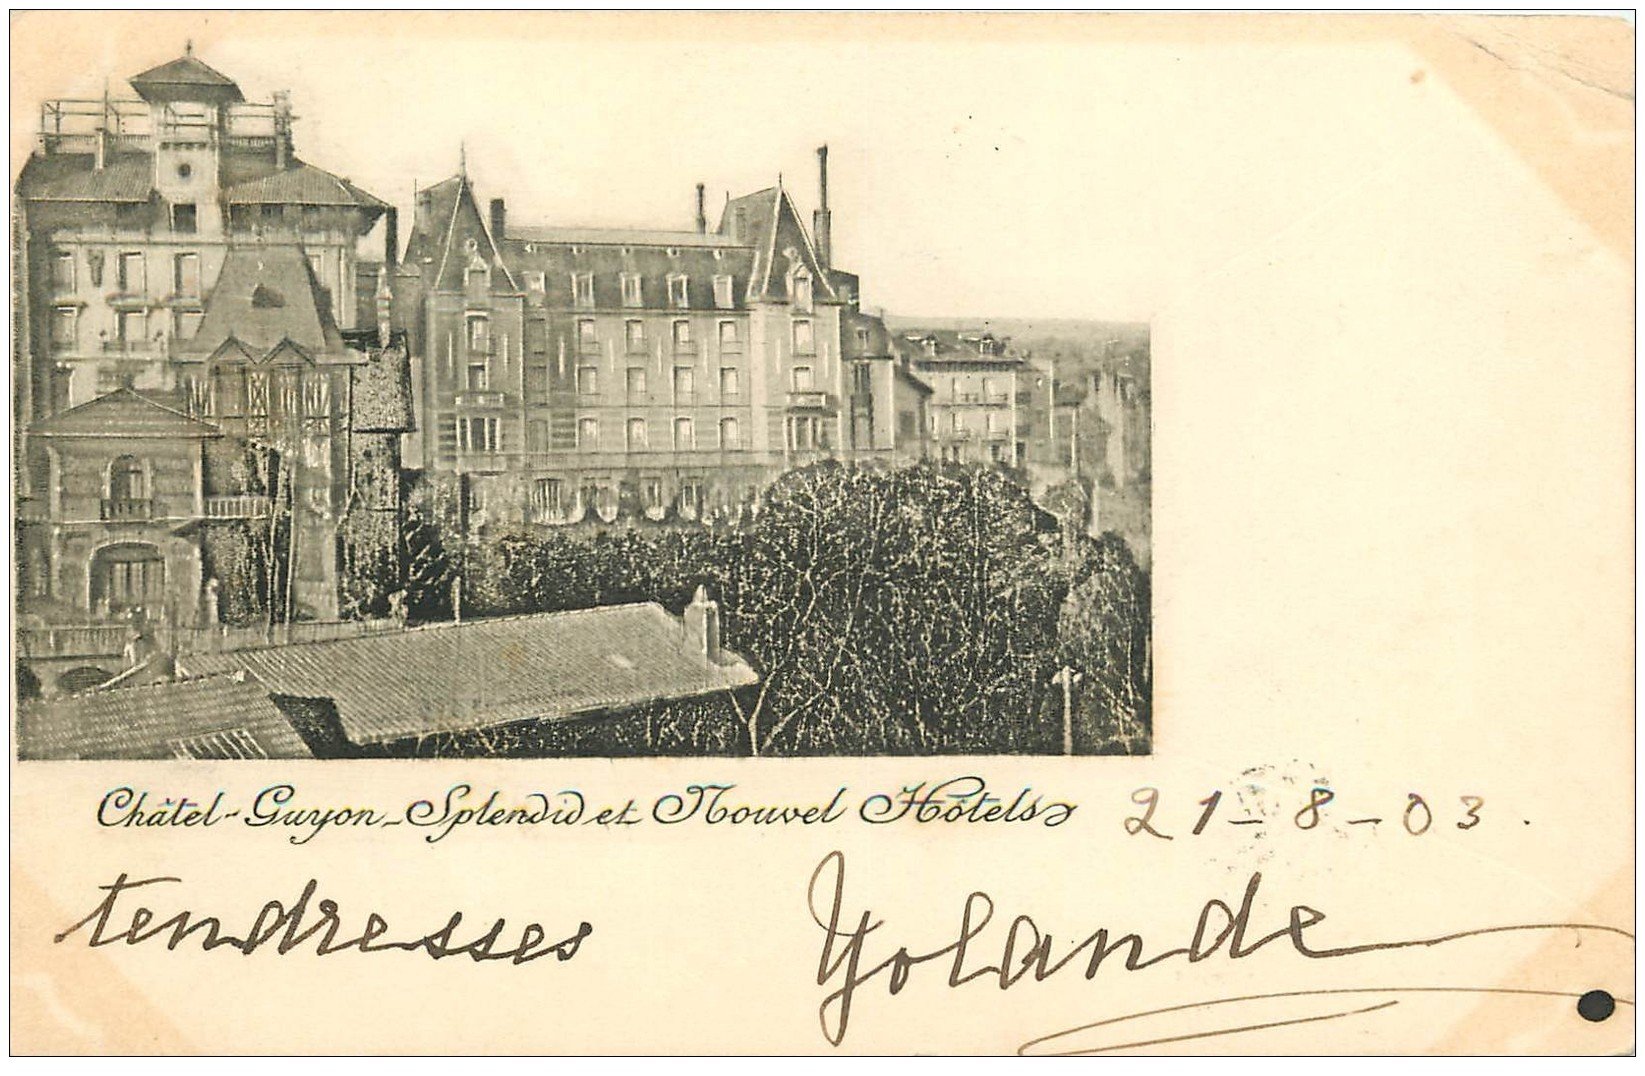 Châtel-Guyon - Splendid et Nouvel Hôtels 21 - 8 - 03.
tendresses Yolande